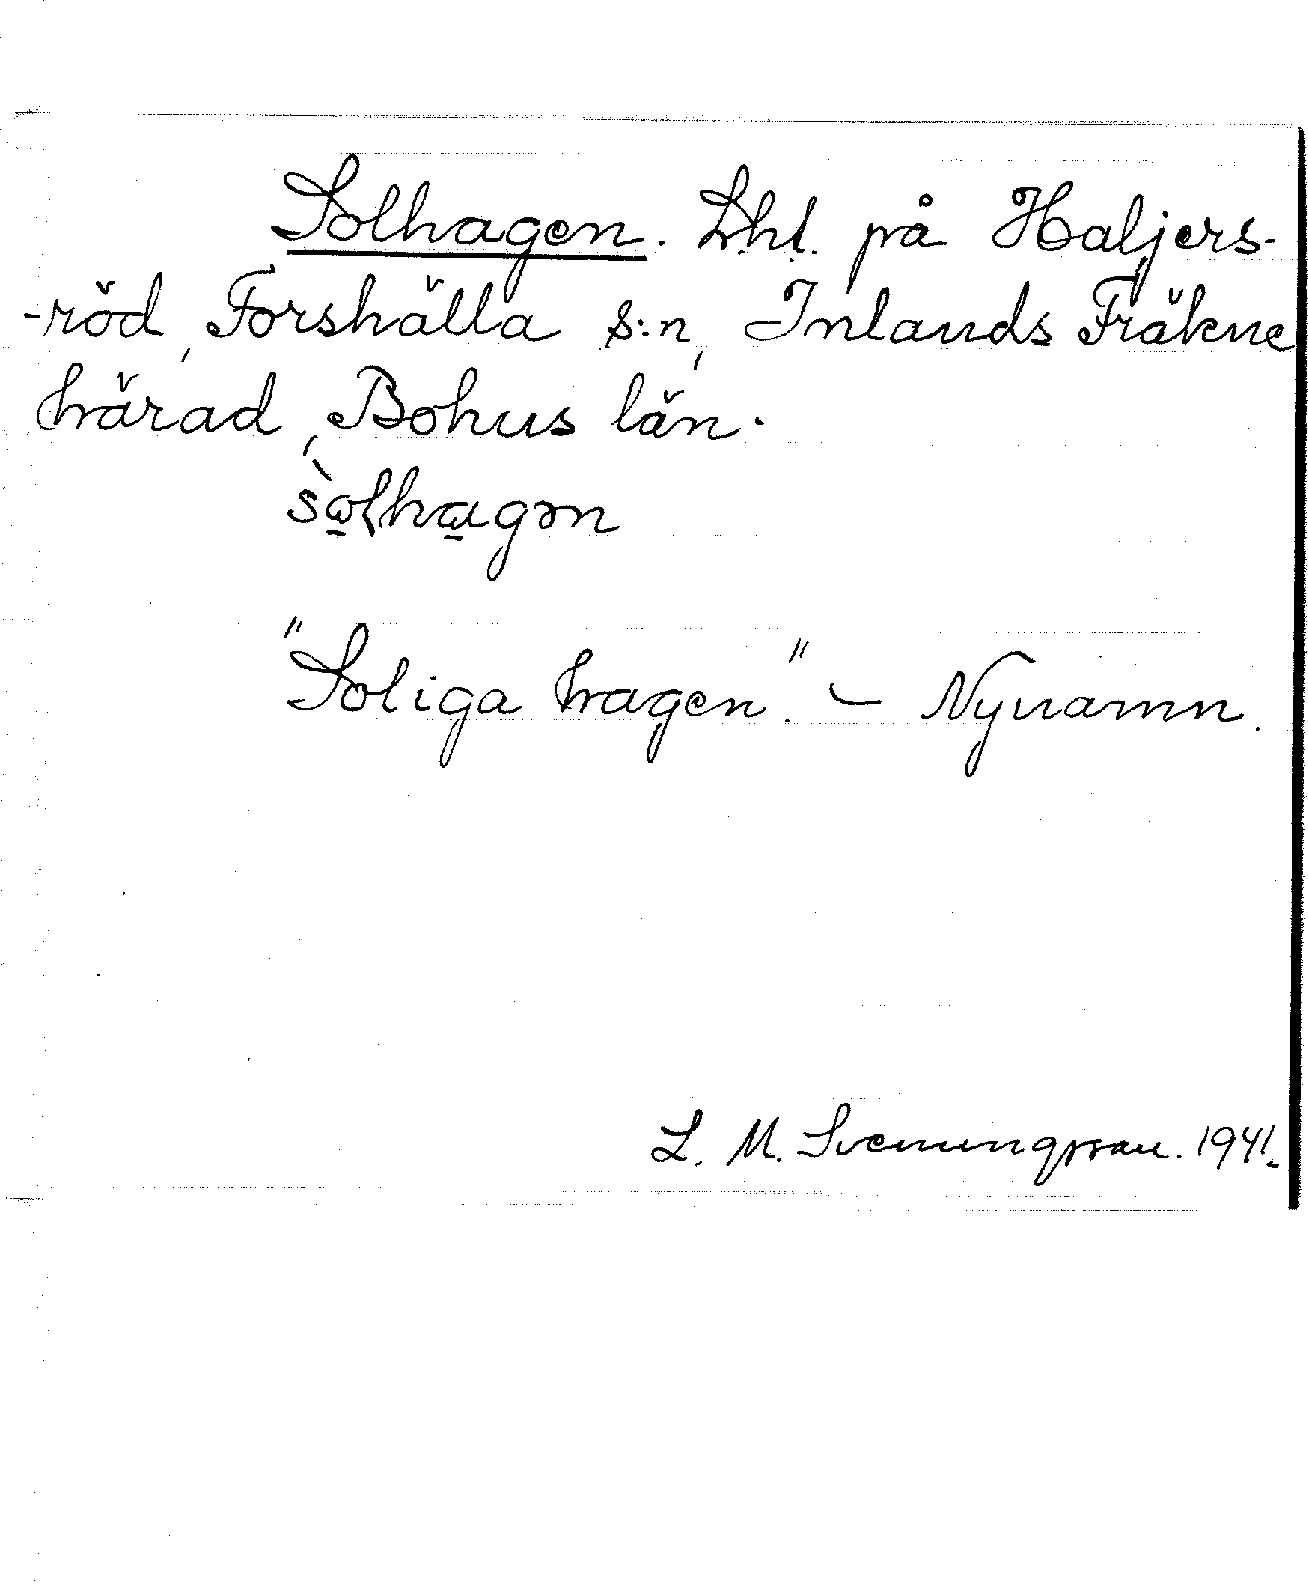 Solhagen. Lht. på Haljers-
-röd, Forshälla s:n, Inlands Fräkne
härad, Bohus län.
sòlhagən
"Soliga hagen." – Nynamn.
L. M. Svenungsson. 1941.